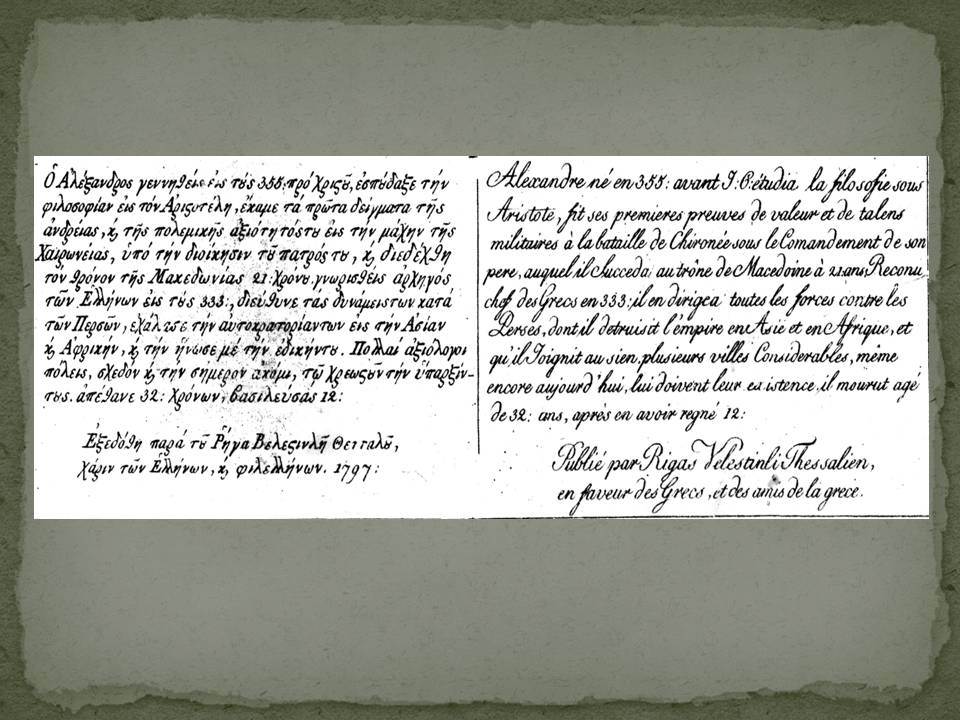 Ὁ Ἀλέξανδρος γεννηθείς εἰς τούς 355. πρό Χριστοῦ, ἐσπούδαξε τήν
φιλοσοφίαν εἰς τόν Ἀριστοτέλη, ἔκαμε τά πρῶτα δείγματα τῆς
ἀνδρείας, ϗ τῆς πολεμικῆς ἀξιότητός του εἰς τήν μάχην τῆς
Χαιρωνείας, ὑπό τήν διοίκησιν τοῦ πατρός του, ϗ διεδέχθη
τόν θρόνον τῆς Μακεδωνίας 21: χρόνου. γνωρισθείς ἀρχηγός
τῶν Ἑλλήνων εἰς τούς 333:, διεύθυνε τάς δυνάμεις των κατά
τῶν Περσῶν, ἐχάλασε τήν αὐτοκρατορίαν των εἰς τήν Ἀσίαν
ϗ Ἀφρικήν, ϗ τήν ἥνωσε μέ τήν ἐδικήν του. Πολλαί ἀξιόλογοι
πόλεις, σχεδόν ϗ τήν σήμερον ἀκόμι, τῷ χρεωστοῦν τήν ὕπαρξίν-
τους. ἀπέθανε 32: χρόνων, βασιλεύσας 12:
Ἐξεδόθη παρά τοῦ Ρήγα Βελεστινλῆ Θετταλοῦ,
χάριν τῶν Ἑλλήνων, ϗ φιλελλήνων. 1797:
Alexandre né en 355: avant J: C: étudia la filosofie sous
Aristote, fit ses premieres preuves de valeur et de talens
militaires à la bataille de Chironée sous le Comandement de son
pere, auquel il Succeda au trône de Macedoine à 21 ans, Reconu
chef des Grecs en 333: il en dirigea toutes les forces contre les
Perses, dont il detruisit l'émpire en Asie et en Afrique, et
qu'il Joignit au sien. plusieurs villes Considerables, même
encore aujourd'hui, lui doivent leur existence, il mourut agé
de 32: ans, après en avoir regné 12:
Publié par Rigas Velestinli Thessalien,
en faveur des Grecs, et des amis de la grece.